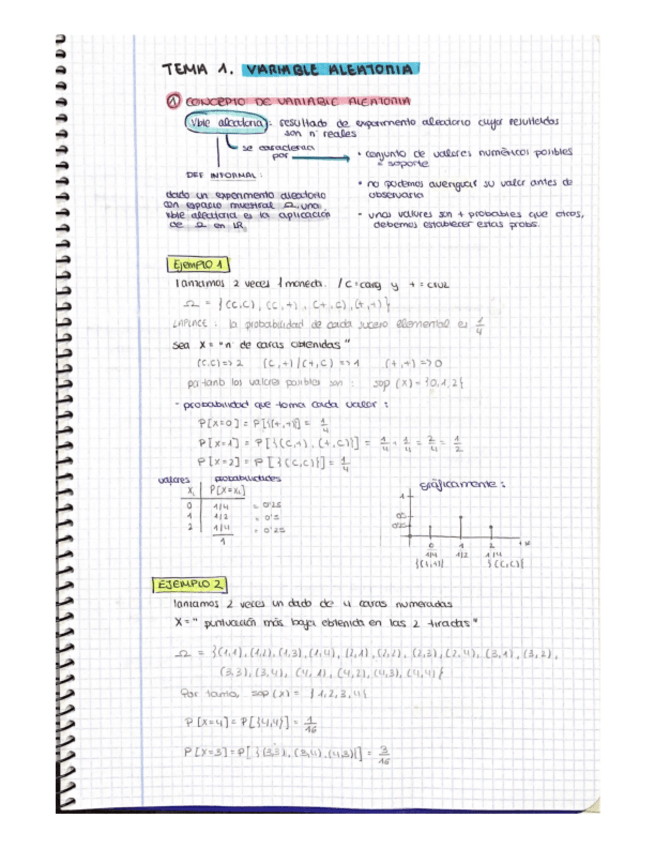 TEMA 1. VARIABLE ALEATORIA
① CONCEPTO DE VARIABLE ALEATORIA
Vble aleatoria: resultado de experimento aleatorio cuyos resultados
son nº reales
se caracteriza
por
• conjunto de valores numéricos posibles
= soporte
DEF INFORMAL:
• no podemos averiguar su valor antes de
observarla
dado un experimento aleatorio
con espacio muestral Ω, una
vble aleatoria es la aplicación
de Ω en IR
• unos valores son + probables que otros,
debemos establecer estas probs.
Ejemplo 1
lanzamos 2 veces 1 moneda. / C = cara y + = cruz
Ω = {(C,C), (C,+), (+,C), (+,+)}
LAPLACE: la probabilidad de cada suceso elemental es 1/4
sea X = "nº de caras obtenidas"
(C,C) => 2 (C,+) / (+,C) => 1 (+,+) => 0
por tanto los valores posibles son: sop (X) = {0,1,2}
- probabilidad que toma cada valor:
P[X=0] = P[{(+,+)}] = 1/4
P[X=1] = P[{(C,+), (+,C)}] = 1/4 + 1/4 = 2/4 = 1/2
P[X=2] = P[{(C,C)}] = 1/4
valores probabilidades
Xi P[X=xi]
0 1/4 = 0'25
1 1/2 = 0'5
2 1/4 = 0'25
1
gráficamente:
1
0'5
0'25
0 1 2
1/4 1/2 1/4
{(C,C)}
EJEMPLO 2
lanzamos 2 veces un dado de 4 caras numeradas
X = "puntuación más baja obtenida en las 2 tiradas"
Ω = {(1,1), (1,2), (1,3), (1,4), (2,1), (2,2), (2,3), (2,4), (3,1), (3,2),
(3,3), (3,4), (4,1), (4,2), (4,3), (4,4)}
Por tanto, sop (x) = {1,2,3,4}
P[X=4] = P[{4,4}] = 1/16
P[X=3] = P[{(3,3), (3,4), (4,3)}] = 3/16